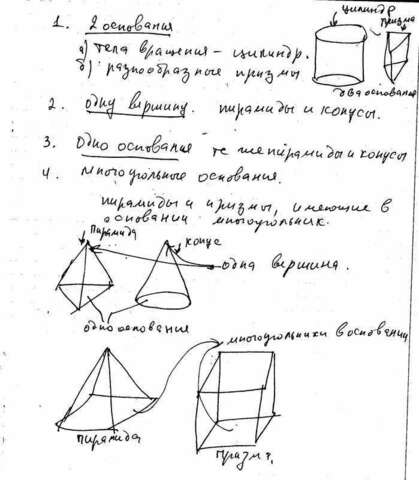 1. 2 основания
цилиндр
призма
а) тела вращения – цилиндр.
б) разнообразные призмы
два основания
2. одну вершину. пирамиды и конусы.
3. Одно основания те же пирамиды и конусы
4. многоугольные основания.
пирамиды и призмы, имеющие в
основании многоугольник.
Пирамида
конус
одна вершина.
одно основания
многоугольники в основании
пирамида
призма